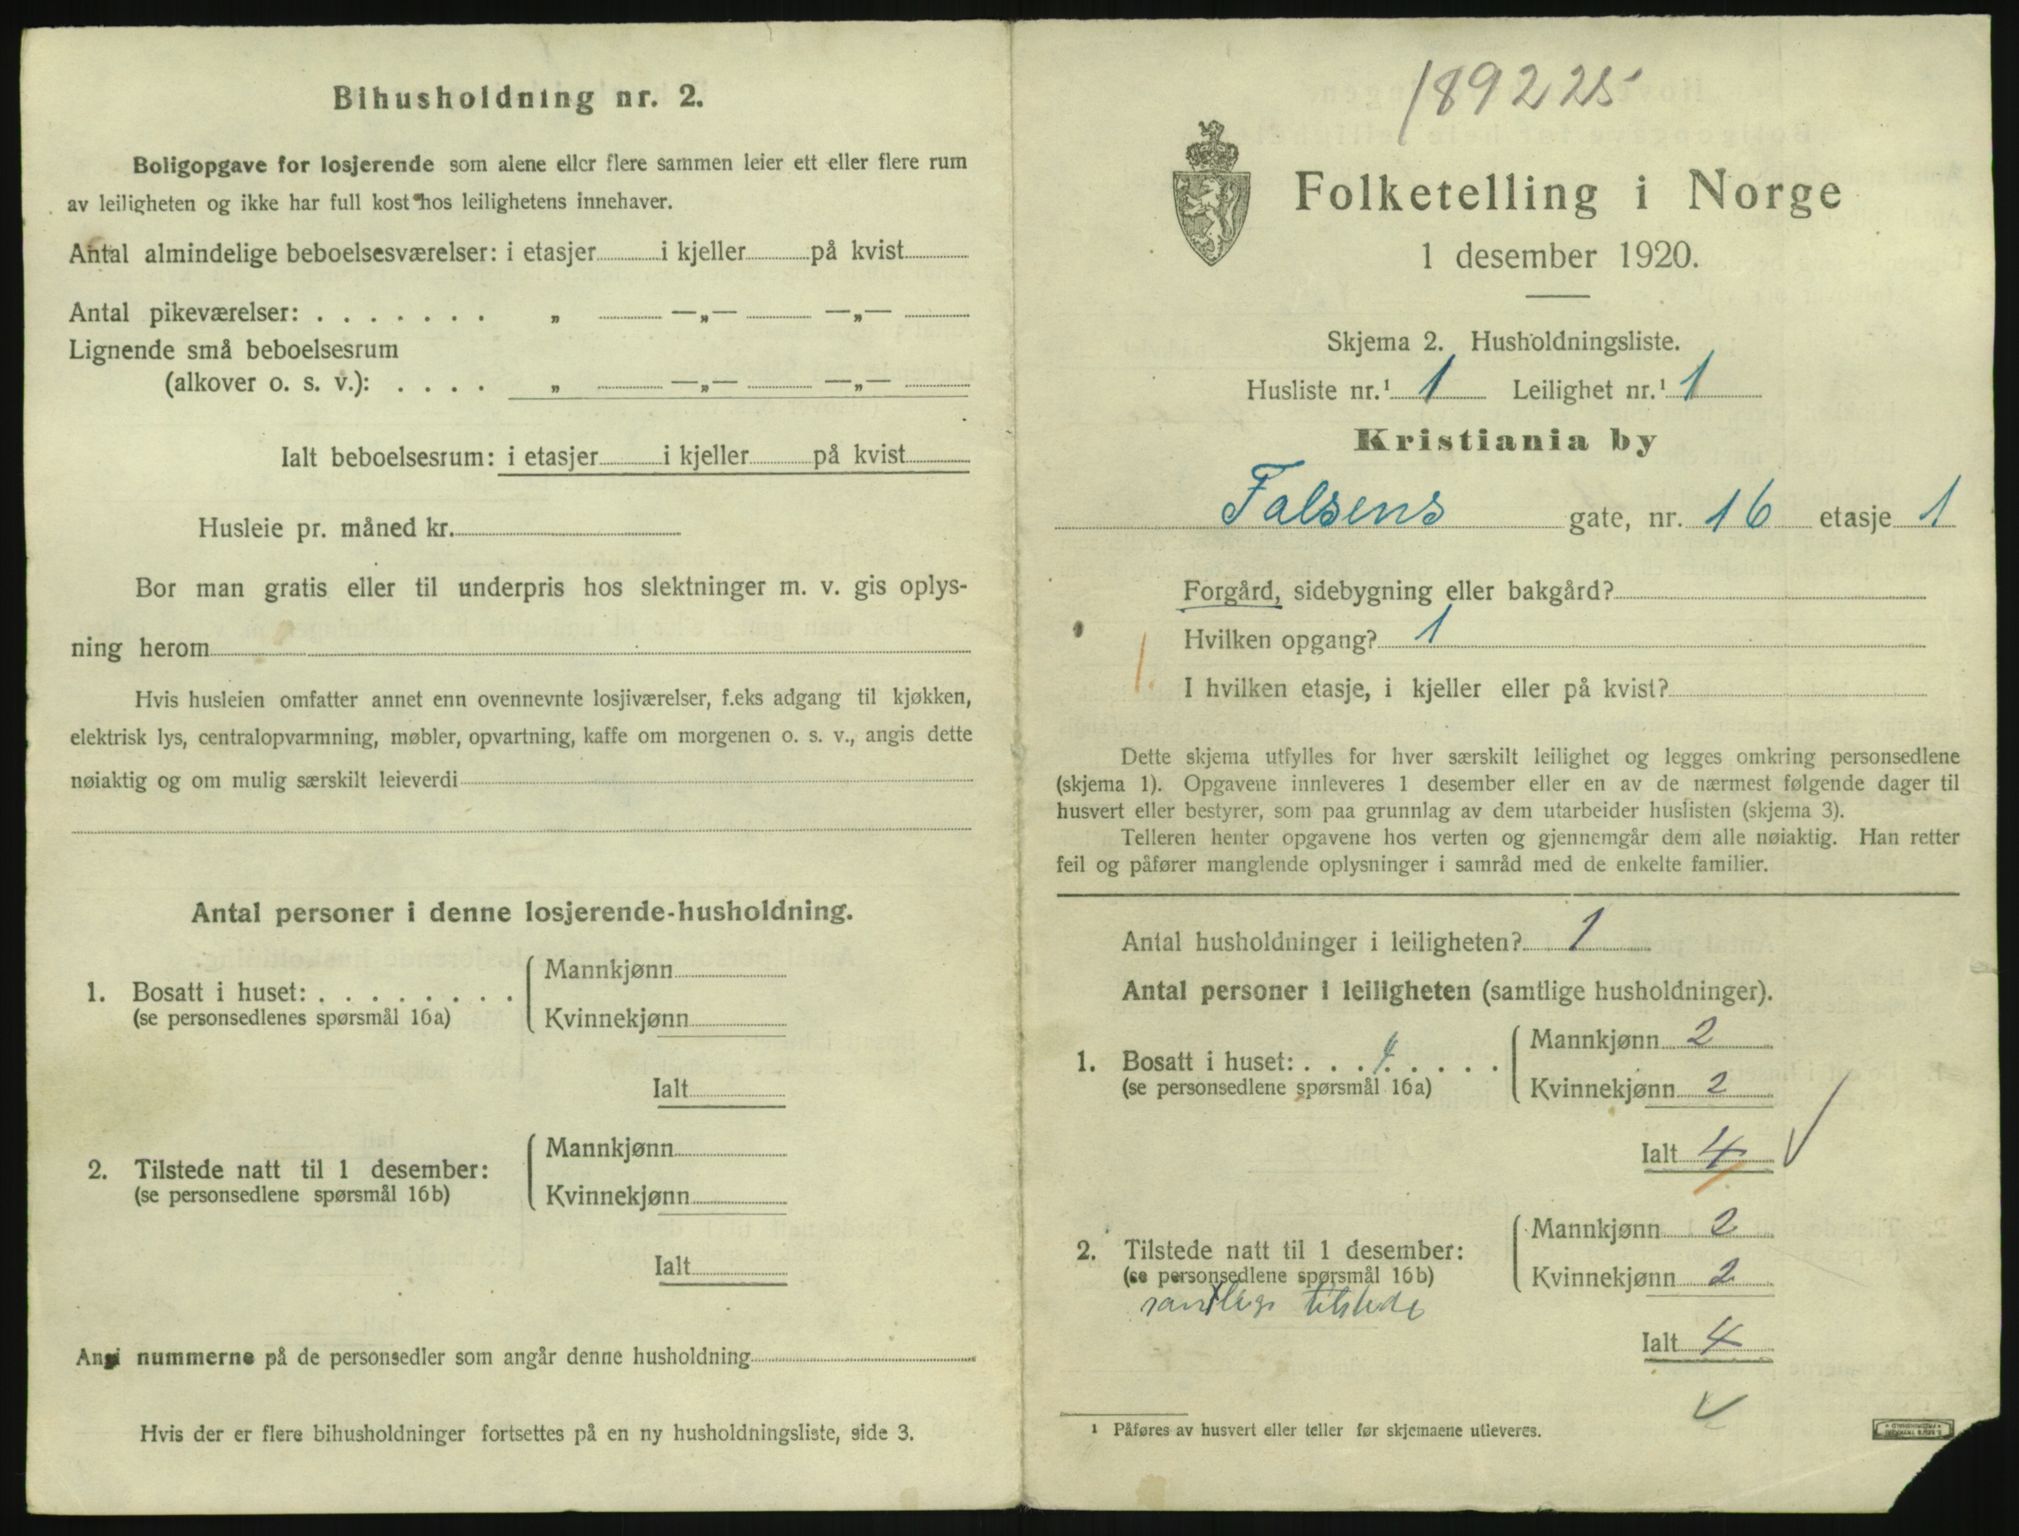 Bihusholdning nr. 2.
Boligopgave for losjerende som alene eller flere sammen leier ett eller flere rum
av leiligheten og ikke har full kost hos leilighetens innehaver.
Antal almindelige beboelsesværelser: i etasjer i kjeller på kvist
Antal pikeværelser: . . . . . . . „ —„— —„—
Lignende små beboelsesrum
(alkover o. s. v.): . . . . „ —„— —„—
Ialt beboelsesrum: i etasjer i kjeller på kvist
Husleie pr. måned kr.
Bor man gratis eller til underpris hos slektninger m. v. gis oplys-
ning herom
Hvis husleien omfatter annet enn ovennevnte losjiværelser, f.eks adgang til kjøkken,
elektrisk lys, centralopvarmning, møbler, opvartning, kaffe om morgenen o. s. v., angis dette
nøiaktig og om mulig særskilt leieverdi
Antal personer i denne losjerende-husholdning.
1. Bosatt i huset: . . . . . . . . .
(se personsedlenes spørsmål 16a)
Mannkjønn
Kvinnekjønn
Ialt
2. Tilstede natt til 1 desember:
(se personsedlene spørsmål 16b)
Mannkjønn
Kvinnekjønn
Ialt
Angi nummerne på de personsedler som angår denne husholdning
Hvis der er flere bihusholdninger fortsettes på en ny husholdningsliste, side 3.
189225
Folketelling i Norge
1 desember 1920.
Skjema 2. Husholdningsliste.
Husliste nr.¹ 1 Leilighet nr.¹ 1
Kristiania by
Falsens gate, nr. 16 etasje 1
Forgård, sidebygning eller bakgård?
Hvilken opgang? 1
1.
I hvilken etasje, i kjeller eller på kvist?
Dette skjema utfylles for hver særskilt leilighet og legges omkring personsedlene
(skjema 1). Opgavene innleveres 1 desember eller en av de nærmest følgende dager til
husvert eller bestyrer, som paa grunnlag av dem utarbeider huslisten (skjema 3).
Telleren henter opgavene hos verten og gjennemgår dem alle nøiaktig. Han retter
feil og påfører manglende oplysninger i samråd med de enkelte familier.
Antal husholdninger i leiligheten? 1
Antal personer i leiligheten (samtlige husholdninger).
1. Bosatt i huset: . . . . . . . .
(se personsedlene spørsmål 16a)
Mannkjønn 2
Kvinnekjønn 2
Ialt 4
2. Tilstede natt til 1 desember:
(se personsedlene spørsmål 16b)
samtlige tilstede
Mannkjønn 2
Kvinnekjønn 2
Ialt 4
¹ Påføres av husvert eller teller før skjemaene utleveres.